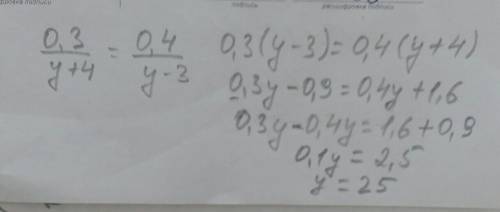 подпись
расшифровка подписи
0,3/(y+4) = 0,4/(y-3)
0,3(y-3)=0,4(y+4)
0,3y-0,9=0,4y+1,6
0,3y-0,4y=1,6+0,9
0,1y=2,5
y=25